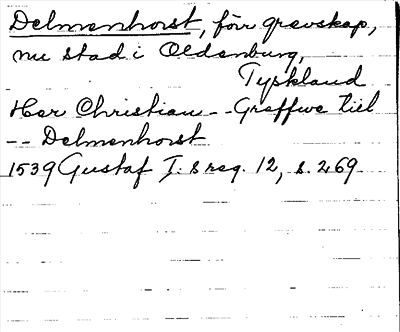 Delmenhorst, förr grevskap,
nu stad i Oldenburg,
Tyskland
Her Christian -- Greffwe tiil
-- Delmenhorst
1539 Gustaf I:s reg. 12, s. 269